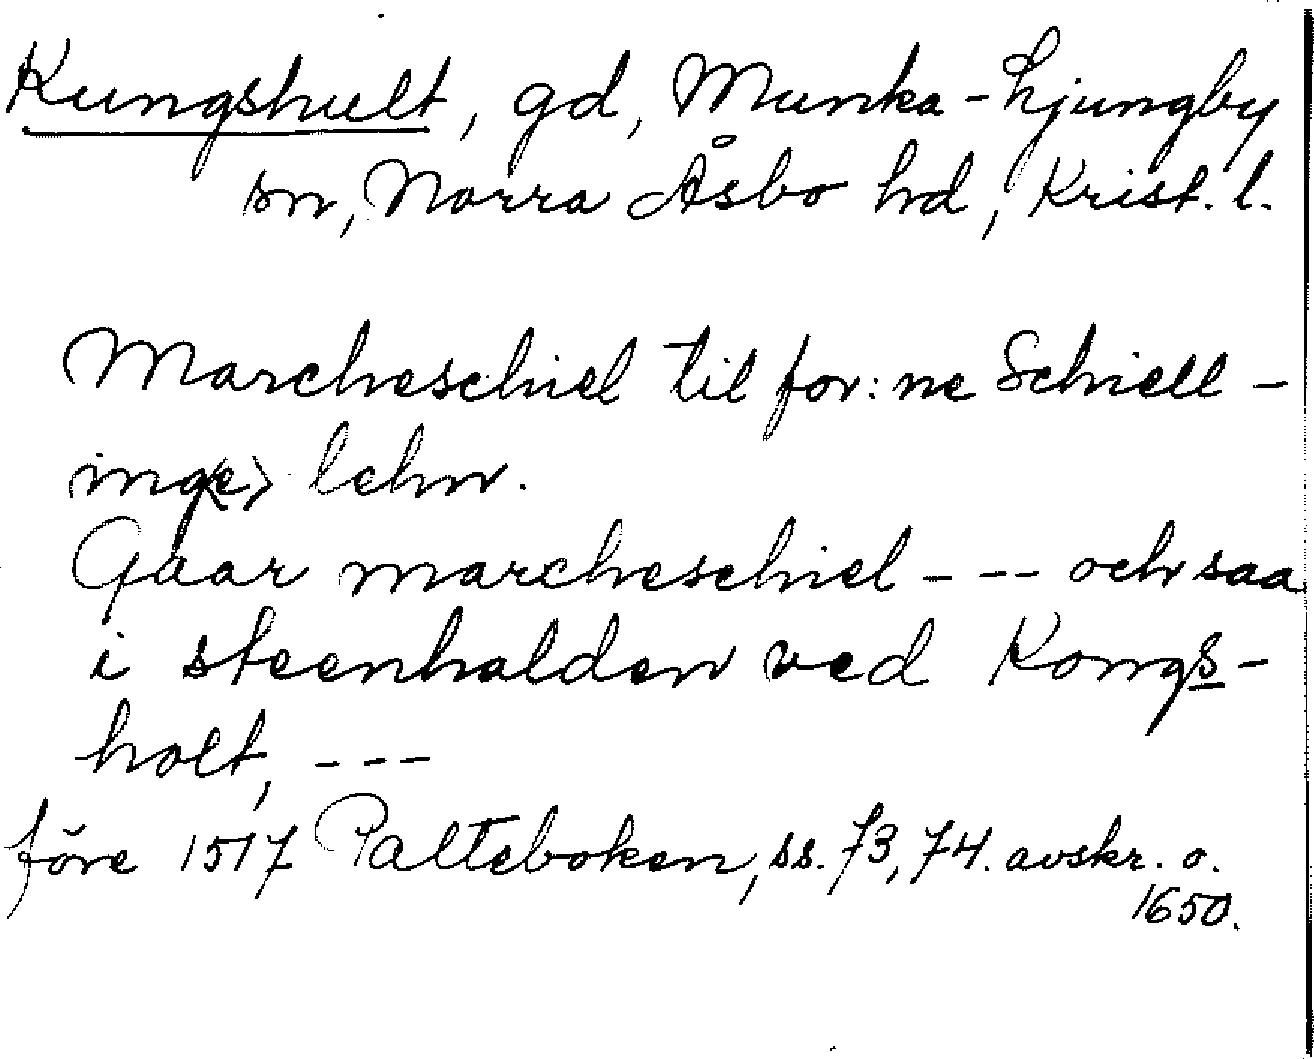 Kungshult, gd, Munka-Ljungby
sn, Norra Åsbo hd, Krist. l.
Marcheschiel til for:ne Schiell-
ing<e> lehn.
Gaar marcheschiel --- och saa
i steenhalden ved Kongs-
holt, ---
före 1517 Palteboken, ss. 73, 74. avskr. o.
1650.